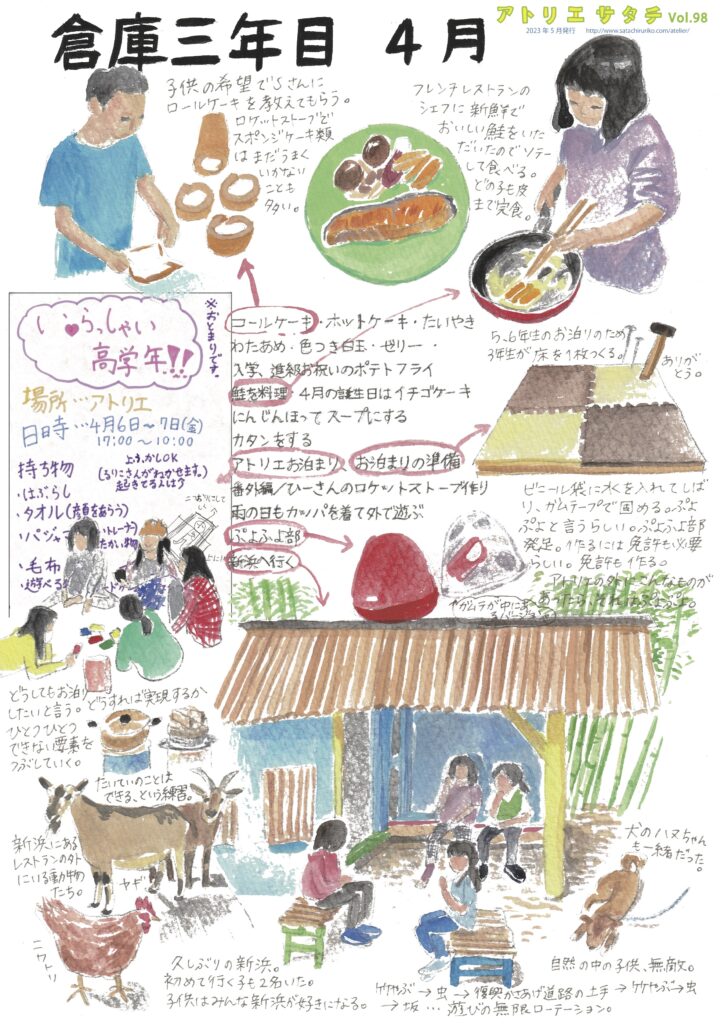 倉庫三年目 4月
アトリエ サタチ Vol.98
2023年5月発行 http://www.satachiruriko.com/atelier/
子供の希望でSさんに
ロールケーキを教えてもらう。
ロケットストーブで
スポンジケーキ類
はまだうまく
いかない
ことも
多い。
フレンチレストランの
シェフに新鮮で
おいしい鮭をいた
だいたのでソテー
して食べる。
どの子も皮
まで完食。
いらっしゃい
高学年!!
※おとまりです。
場所…アトリエ
日時…4月6日〜7日(金)
17:00〜10:00
持ち物
・はぶらし
・タオル(顔をあらう)
・パジャマ
・毛布
・遊べる
ロールケーキ・ホットケーキ・たいやき
わたあめ・色つき白玉・ゼリー・
入学、進級お祝いのポテトフライ
鮭を料理・4月の誕生日はイチゴケーキ
にんじんほってスープにする
カタンをする
アトリエお泊まり、お泊まりの準備
番外編/ひーさんのロケットストーブ作り
雨の日もカッパを着て外で遊ぶ
ぷよぷよ部
新浜へ行く
5、6年生のお泊りのため
3年生が床を1枚つくる。
ありが
とう。
ビニール袋に水を入れてしば
り、ガムテープで固める。ぷよ
ぷよと言うらしい。ぷよぷよ部
発足。作るには免許も必要
らしい。免許も作る。
アトリエの外にこんなものが
あったら、それはぷよぷよ。
どうしてもお泊り
したいと言う。
どうすれば実現するか
ひとつひとつ
できない要素を
つぶしていく。
たいていのことは
できる、という練習。
新浜にある
レストランの外
にいる動物
たち。
ヤギ
ニワトリ
犬のハヌちゃん
も一緒だった。
久しぶりの新浜。
初めて行く子も2名いた。
子供はみんな新浜が好きになる。
自然の中の子供、無敵。
ケケやぶ→虫→復興かさあげ道路の土手→ケケやぶ→虫
→坂…遊びの無限ローテーション。